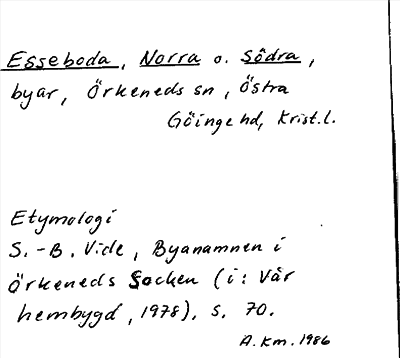 Esseboda, Norra o. Södra,
byar, Örkeneds sn, Östra
Göinge hd, Krist. l.
Etymologi
S.-B. Vide, Byanamnen i
Örkeneds Socken (i: Vår
hembygd, 1978), s. 70.
A. Km. 1986